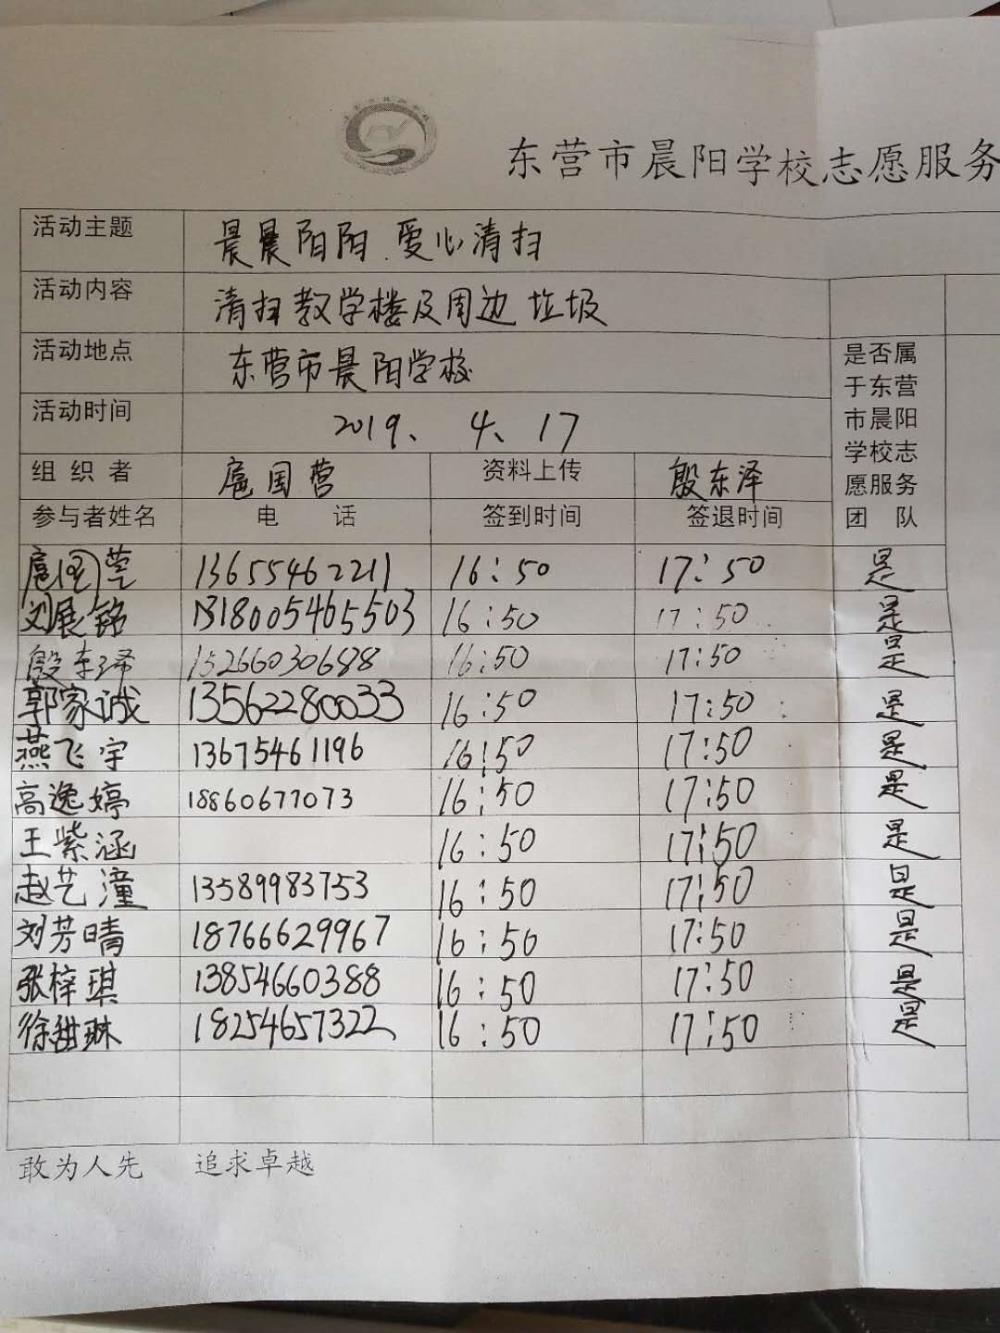 东营市晨阳学校志愿服务
活动主题 晨晨阳阳.爱心清扫
活动内容 清扫教学楼及周边垃圾
活动地点 东营市晨阳学校
是否属于东营市晨阳学校志愿服务团 队
活动时间 2019、4、17
组 织 者 扈国营 资料上传 殷东泽
参与者姓名 电 话 签到时间 签退时间
扈国营 13655462211 16:50 17:50 是
刘展铭 16:50 17:50 是
殷东泽 15266030688 16:50 17:50 是
郭家诚 13562280033 16:50 17:50 是
燕飞宇 13675461196 16:50 17:50 是
高逸婷 18860677073 16:50 17:50 是
王紫涵 16:50 17:50 是
赵艺潼 13589983753 16:50 17:50 是
刘芳晴 18766629967 16:50 17:50 是
张梓琪 13854660388 16:50 17:50 是
徐甜琳 18254657322 16:50 17:50 是
敢为人先 追求卓越